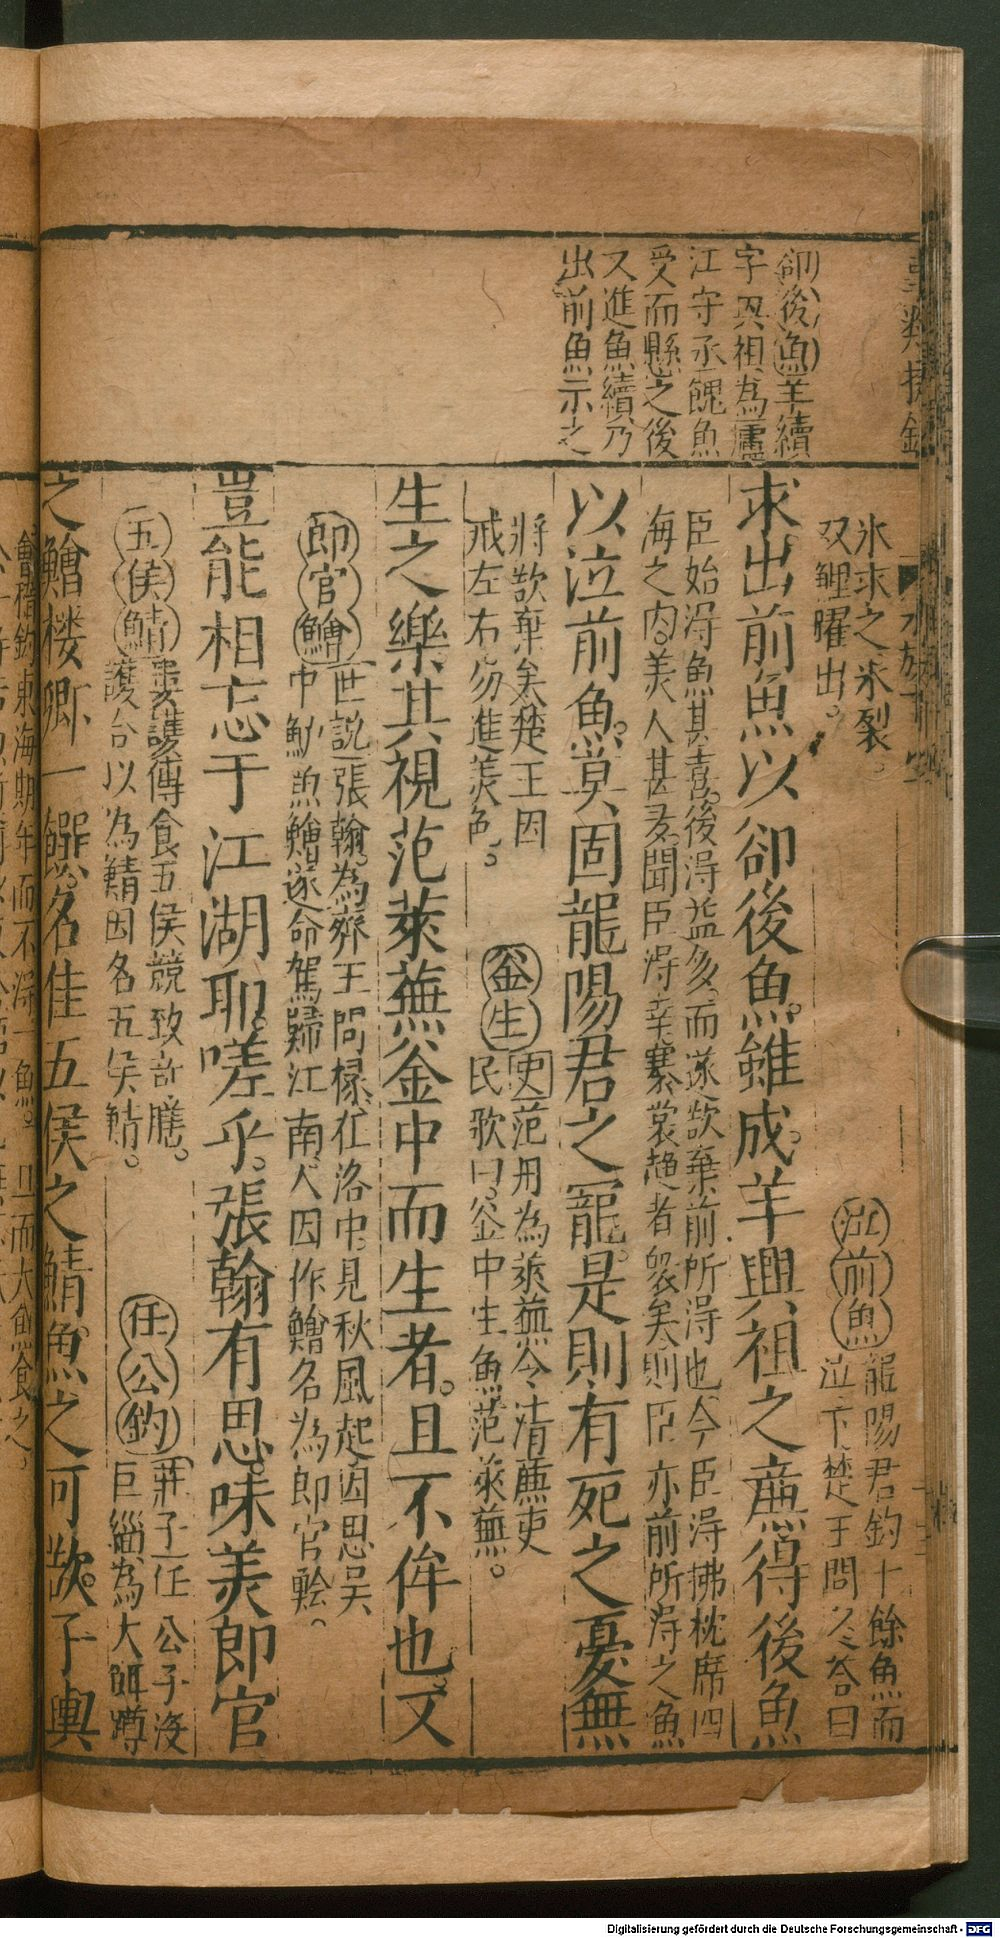 卻後魚羊續
字興祖為廬
江守丞餽魚
受而懸之後
又進魚續乃
出前魚示之
氷求之氷裂。
双鯉曜出。
泣前魚
龍陽君釣十餘魚而
泣下楚王問之答曰
求出前魚以卻後魚。雖成羊興祖之亷得後魚
臣始淂魚其喜。後淂益多。而遂欲棄前所淂也今臣淂拂枕席四
海之内。美人甚多。聞臣淂幸褰裳趨者眾矣。則臣亦前所淂之魚
以泣前魚。莫固龍陽君之寵。是則有死之憂無
將欲棄矣楚王因
戒左右勿進美色。
釜生
史范丹為萊蕪令清亷吏
民歌曰。釜中生魚范萊蕪。
生之樂其視范萊蕪釜中而生者。且不侔也。又
即官鱠
世説張翰。為齊王問椽。在洛中。見秋風起。因思吴
中魦魚鱠遂命駕歸江南人因作鱠名為即官鲙。
豈能相忘于江湖耶。嗟乎。張翰有思。味美即官
五侯鯖
婁護傳食五侯競致竒膳。
護合以為鯖因名五侯鯖。
任公釣
莊子任公子為
巨緇為大餌蹲
之鱠楼卿一饌。名佳五侯之鯖魚之可歎。子輿
會稽釣東海期年而不淂一魚。旦而大魚食之。
Digitalisierung gefördert durch die Deutsche Forschungsgemeinschaft - DFG